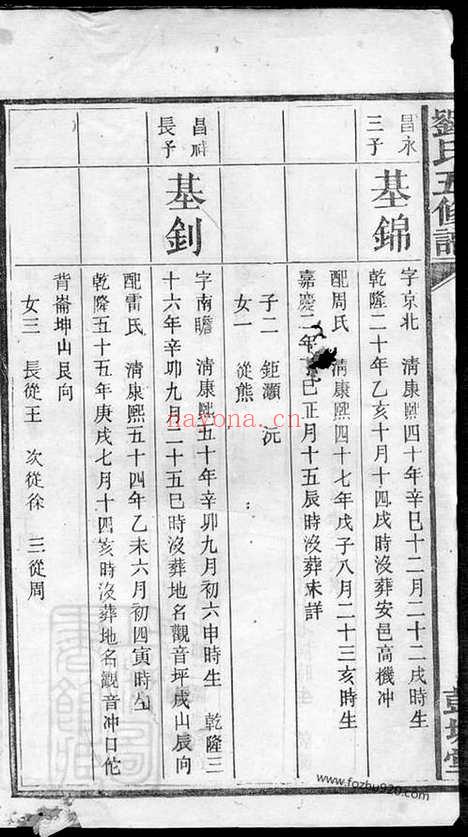 劉氏五修譜
昌永
三子
基錦
字京北 清康熙四十年辛巳十二月二十二戌時生
乾隆二十年乙亥十月十四戌時沒葬安邑高機冲
配周氏 清康熙四十七年戊子八月二十三亥時生
嘉慶二年巳正月十五辰時沒葬未詳
子二 鉅灝 沅
女一 從熊
昌祥
長子
基釗
字南瞻 清康熙五十年辛卯九月初六申時生 乾隆三
十六年辛卯九月二十五巳時沒葬地名觀音坪戌山辰向
配雷氏 清康熙五十四年乙未六月初四寅時生
乾隆五十五年庚戌七月十四亥時沒葬地名觀音冲口佗
背崙坤山艮向
女三 長從王 次從徐 三從周
nayona.cn
www.fozhu920.com